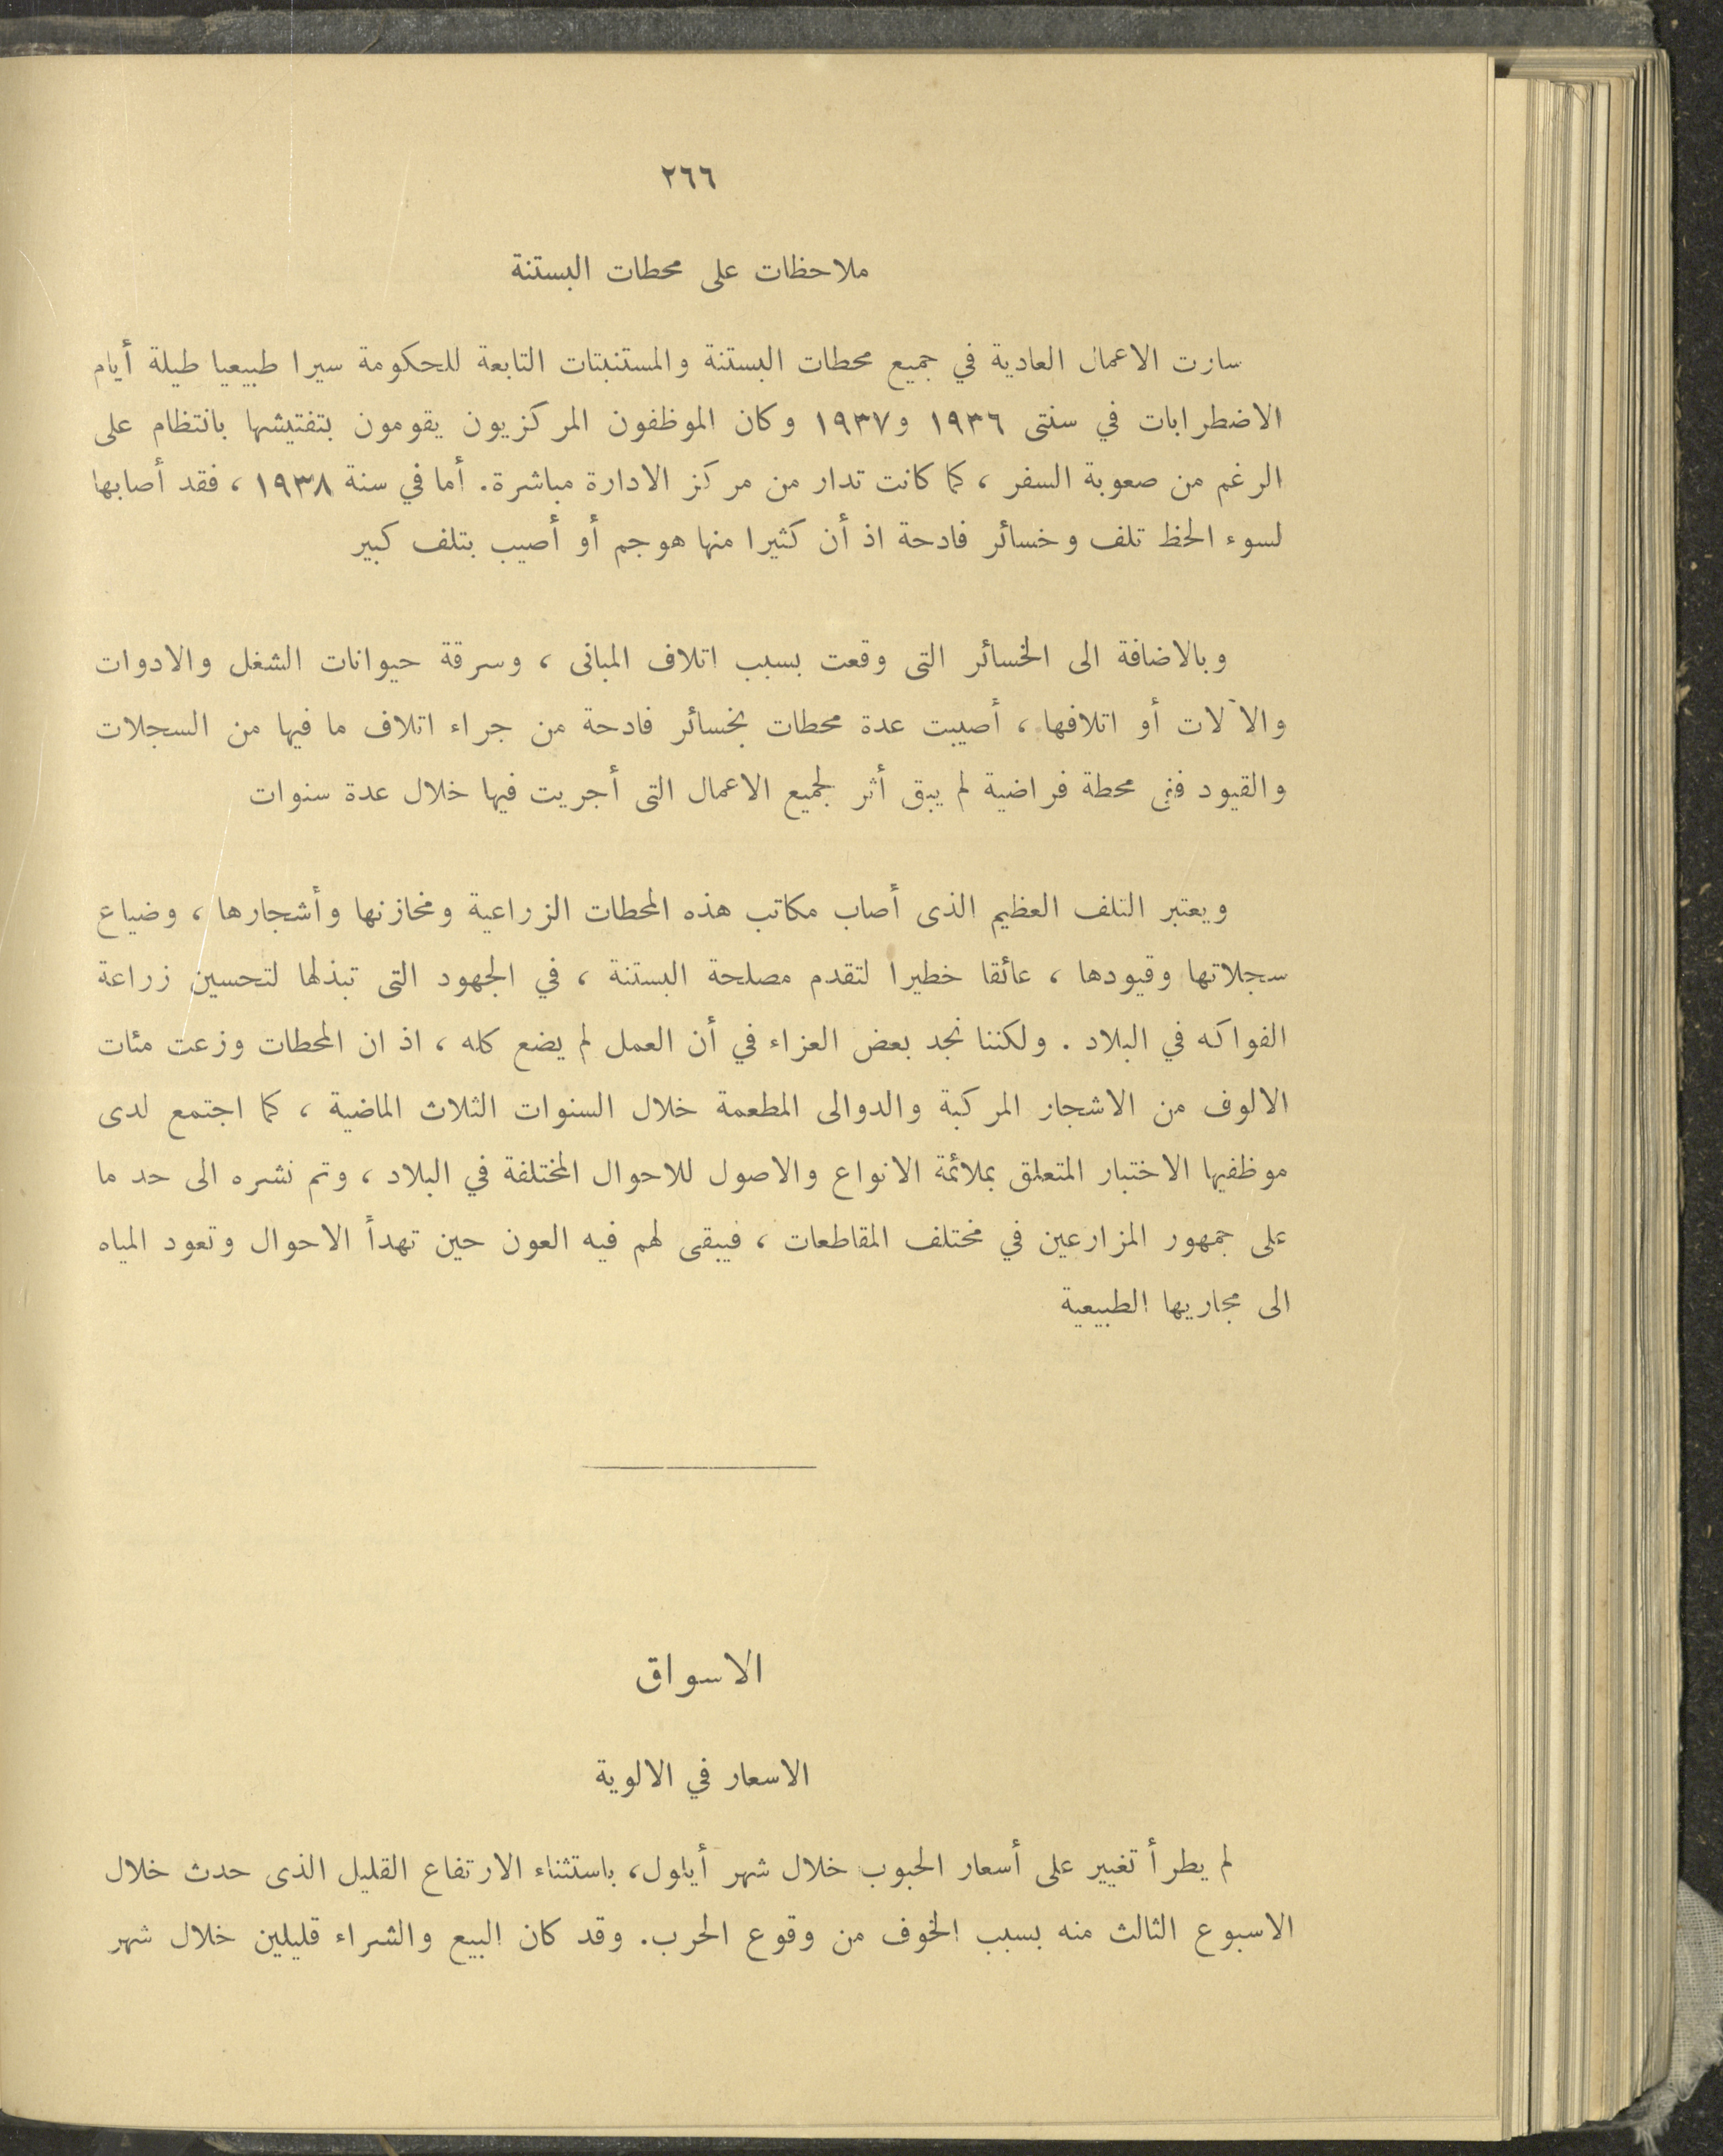 ٢٦٦
ملاحظات على محطات البستنة
سارت الاعمال العادية في جميع محطات البستنة والمستنبتات التابعة للحكومة سيرا طبيعيا طيلة أيام
الاضطرابات في سنتى ١٩٣٦ و١٩٣٧ وكان الموظفون المركزيون يقومون بتفتيشها بانتظام على
الرغم من صعوبة السفر ، كما كانت تدار من مركز الادارة مباشرة. أما في سنة ١٩٣٨ ، فقد أصابها
لسوء الحظ تلف وخسائر فادحة اذ أن كثيرا منها هوجم أو أصيب بتلف كبير
وبالاضافة الى الخسائر التى وقعت بسبب اتلاف المبانى ، وسرقة حيوانات الشغل والادوات
والآلات أو اتلافها ، أصيبت عدة محطات بخسائر فادحة من جراء اتلاف ما فيها من السجلات
والقيود ففى محطة فراضية لم يبق أثر لجميع الاعمال التى أجريت فيها خلال عدة سنوات
ويعتبر التلف العظيم الذى أصاب مكاتب هذه المحطات الزراعية ومخازنها وأشجارها ، وضياع
سجلاتها وقيودها ، عائقا خطيرا لتقدم مصلحة البستنة ، في الجهود التى تبذلها لتحسين زراعة
الفواكه في البلاد . ولكننا نجد بعض العزاء في أن العمل لم يضع كله ، اذ ان المحطات وزعت مئات
الالوف من الاشجار المركبة والدوالى المطعمة خلال السنوات الثلاث الماضية ، كما اجتمع لدى
موظفيها الاختبار المتعلق بملائمة الانواع والاصول للاحوال المختلفة في البلاد ، وتم نشره الى حد ما
على جمهور المزارعين في مختلف المقاطعات ، فيبقى لهم فيه العون حين تهدأ الاحوال وتعود المياه
الى مجاريها الطبيعية
الاسواق
الاسعار في الالوية
لم يطرأ تغيير على أسعار الحبوب خلال شهر أيلول، باستثناء الارتفاع القليل الذى حدث خلال
الاسبوع الثالث منه بسبب الخوف من وقوع الحرب. وقد كان البيع والشراء قليلين خلال شهر